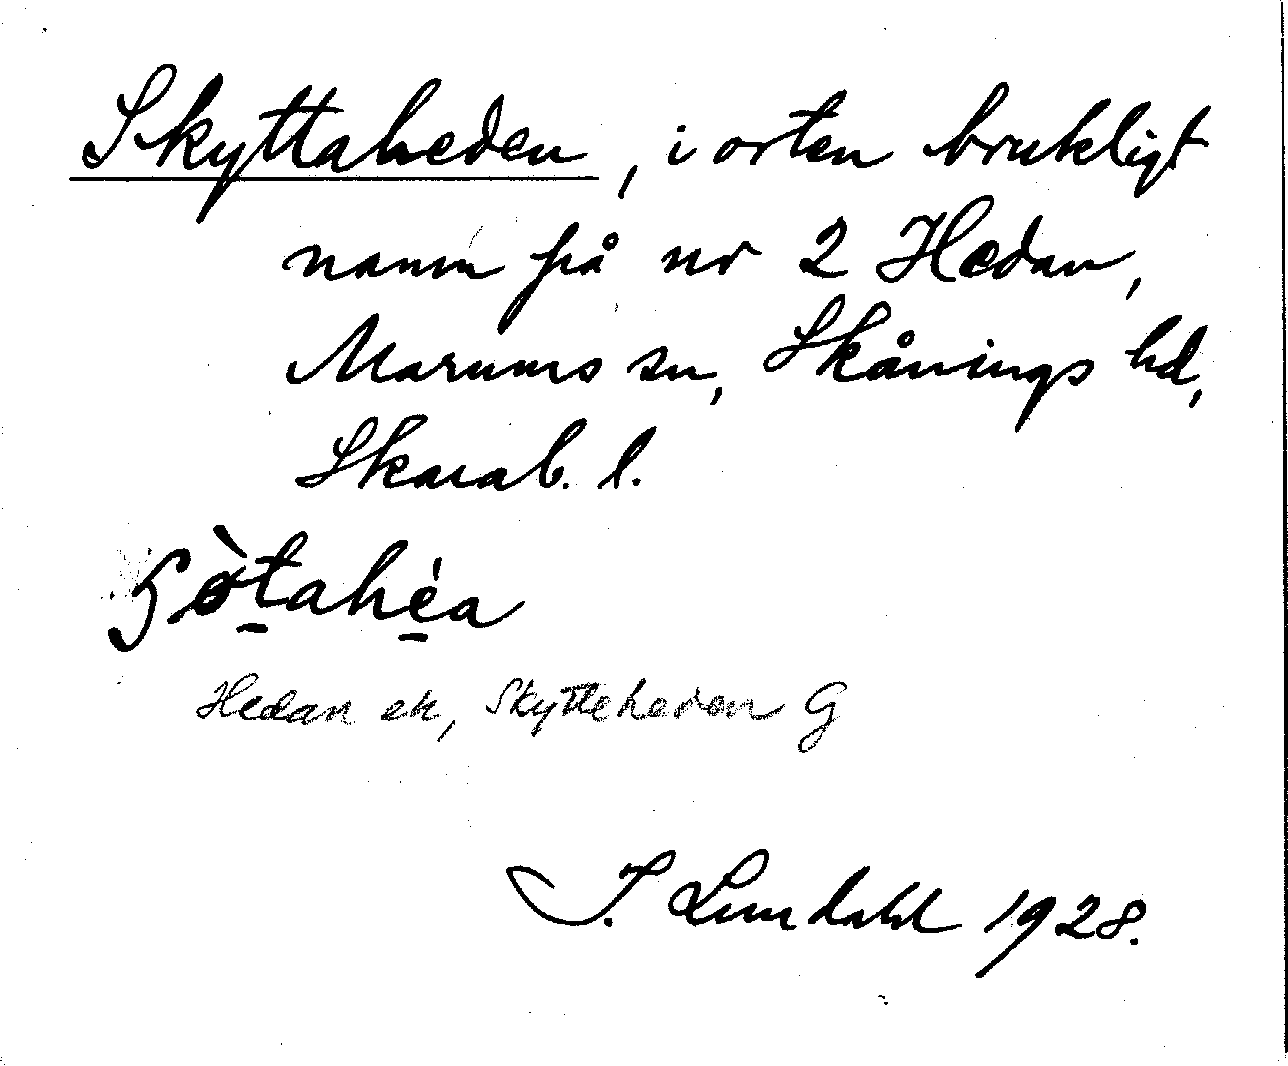 Skyttaheden, i orten brukligt
namn på nr 2 Hedan,
Marums sn, Skånings hd,
Skarab. l.
Hedan ek, Skytteheden G
I. Lundahl 1928.